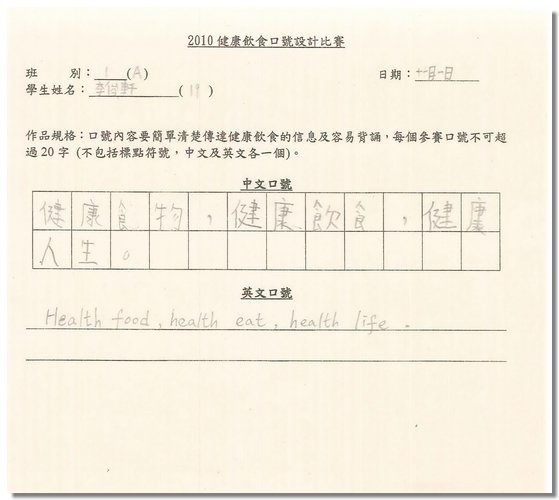 2010 健康飲食口號設計比賽
班　　別：1(A)　日期：十一月一日
學生姓名：李俊軒(19)
作品規格：口號內容要簡單清楚傳達健康飲食的信息及容易背誦，每個參賽口號不可超
過20字 (不包括標點符號，中文及英文各一個)。
中文口號
健康食物，健康飲食，健康
人生。
英文口號
Health food, health eat, health life.